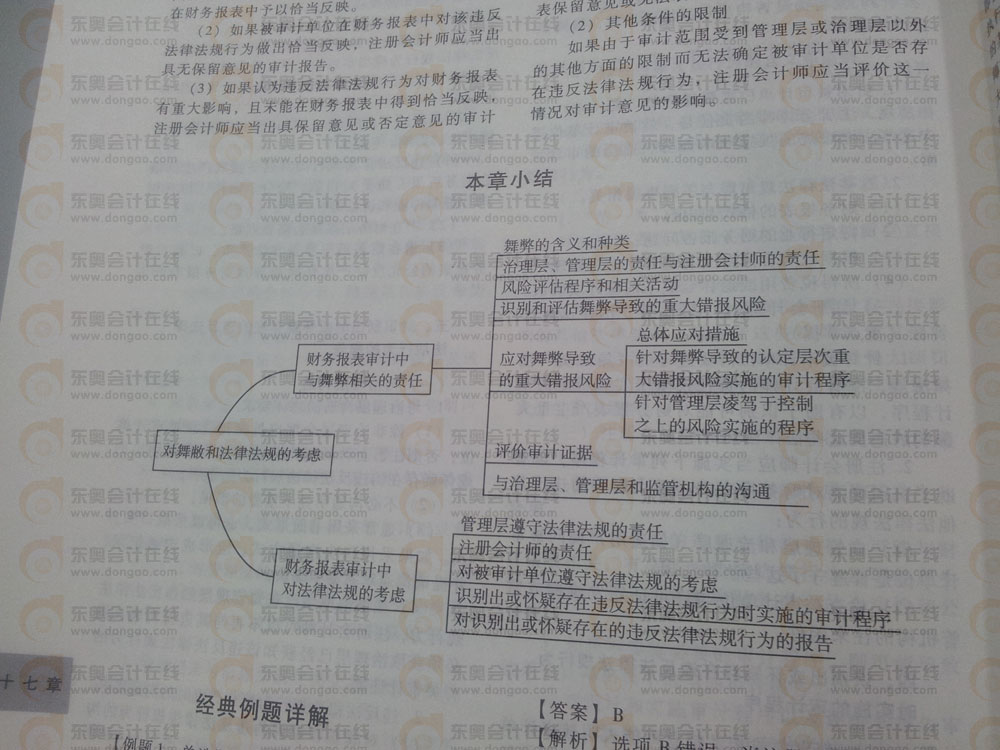 在财务报表中予以恰当反映。
（2）如果被审计单位在财务报表中对该违反
法律法规行为做出恰当反映，注册会计师应当出
具无保留意见的审计报告。
（3）如果认为违反法律法规行为对财务报表
有重大影响，且未能在财务报表中得到恰当反映，
注册会计师应当出具保留意见或否定意见的审计
（2）其他条件的限制
如果由于审计范围受到管理层或治理层以外
的其他方面的限制而无法确定被审计单位是否存
在违反法律法规行为，注册会计师应当评价这一
情况对审计意见的影响。
本章小结
对舞敝和法律法规的考虑
财务报表审计中
与舞弊相关的责任
舞弊的含义和种类
治理层、管理层的责任与注册会计师的责任
风险评估程序和相关活动
识别和评估舞弊导致的重大错报风险
应对舞弊导致
的重大错报风险
总体应对措施
针对舞弊导致的认定层次重
大错报风险实施的审计程序
针对管理层凌驾于控制
之上的风险实施的程序
评价审计证据
与治理层、管理层和监管机构的沟通
财务报表审计中
对法律法规的考虑
管理层遵守法律法规的责任
注册会计师的责任
对被审计单位遵守法律法规的考虑
识别出或怀疑存在违反法律法规行为时实施的审计程序
对识别出或怀疑存在的违反法律法规行为的报告
十七章
经典例题详解
【答案】B
【解析】选项 B 错误
东奥会计在线
www.dongao.com